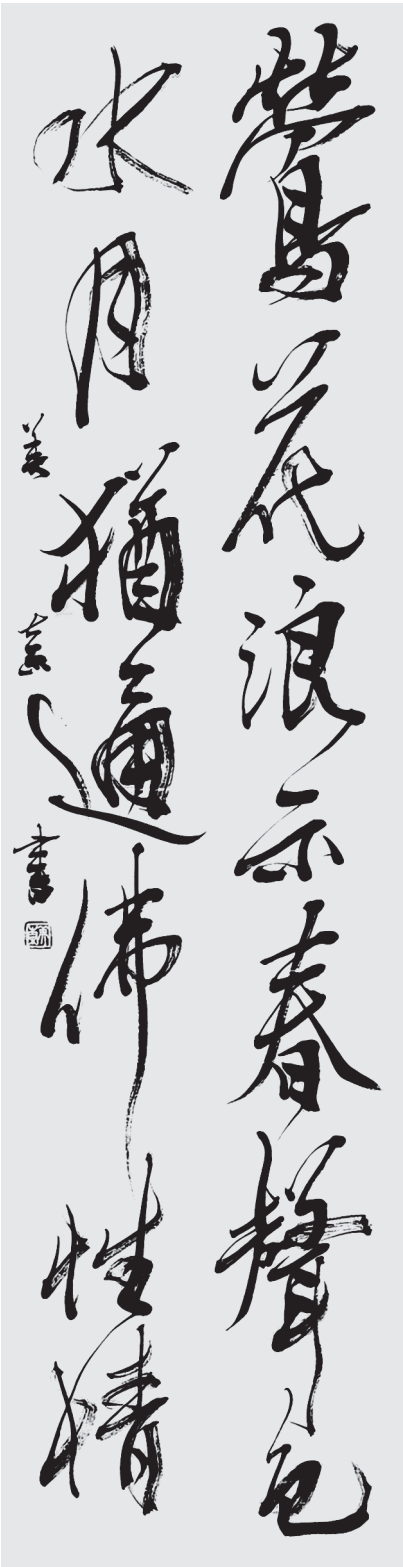 鶯花浪示春聲色
水月猶通佛性情
美 書